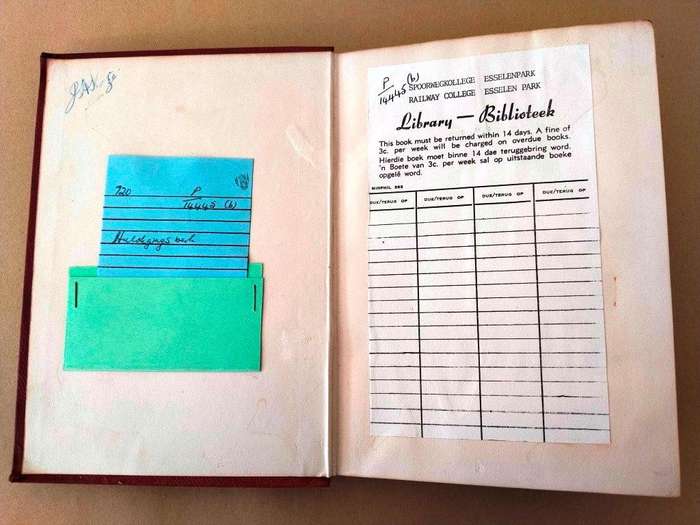 720
P
14445 (b)
Huldigingswerk
P
14445 (b)
SPOORWEGKOLLEGE ESSELENPARK
RAILWAY COLLEGE ESSELEN PARK
Library — Biblioteek
This book must be returned within 14 days. A fine of
3c. per week will be charged on overdue books.
Hierdie boek moet binne 14 dae teruggebring word.
'n Boete van 3c. per week sal op uitstaande boeke
opgelê word.
DUE/TERUG OP DUE/TERUG OP DUE/TERUG OP DUE/TERUG OP